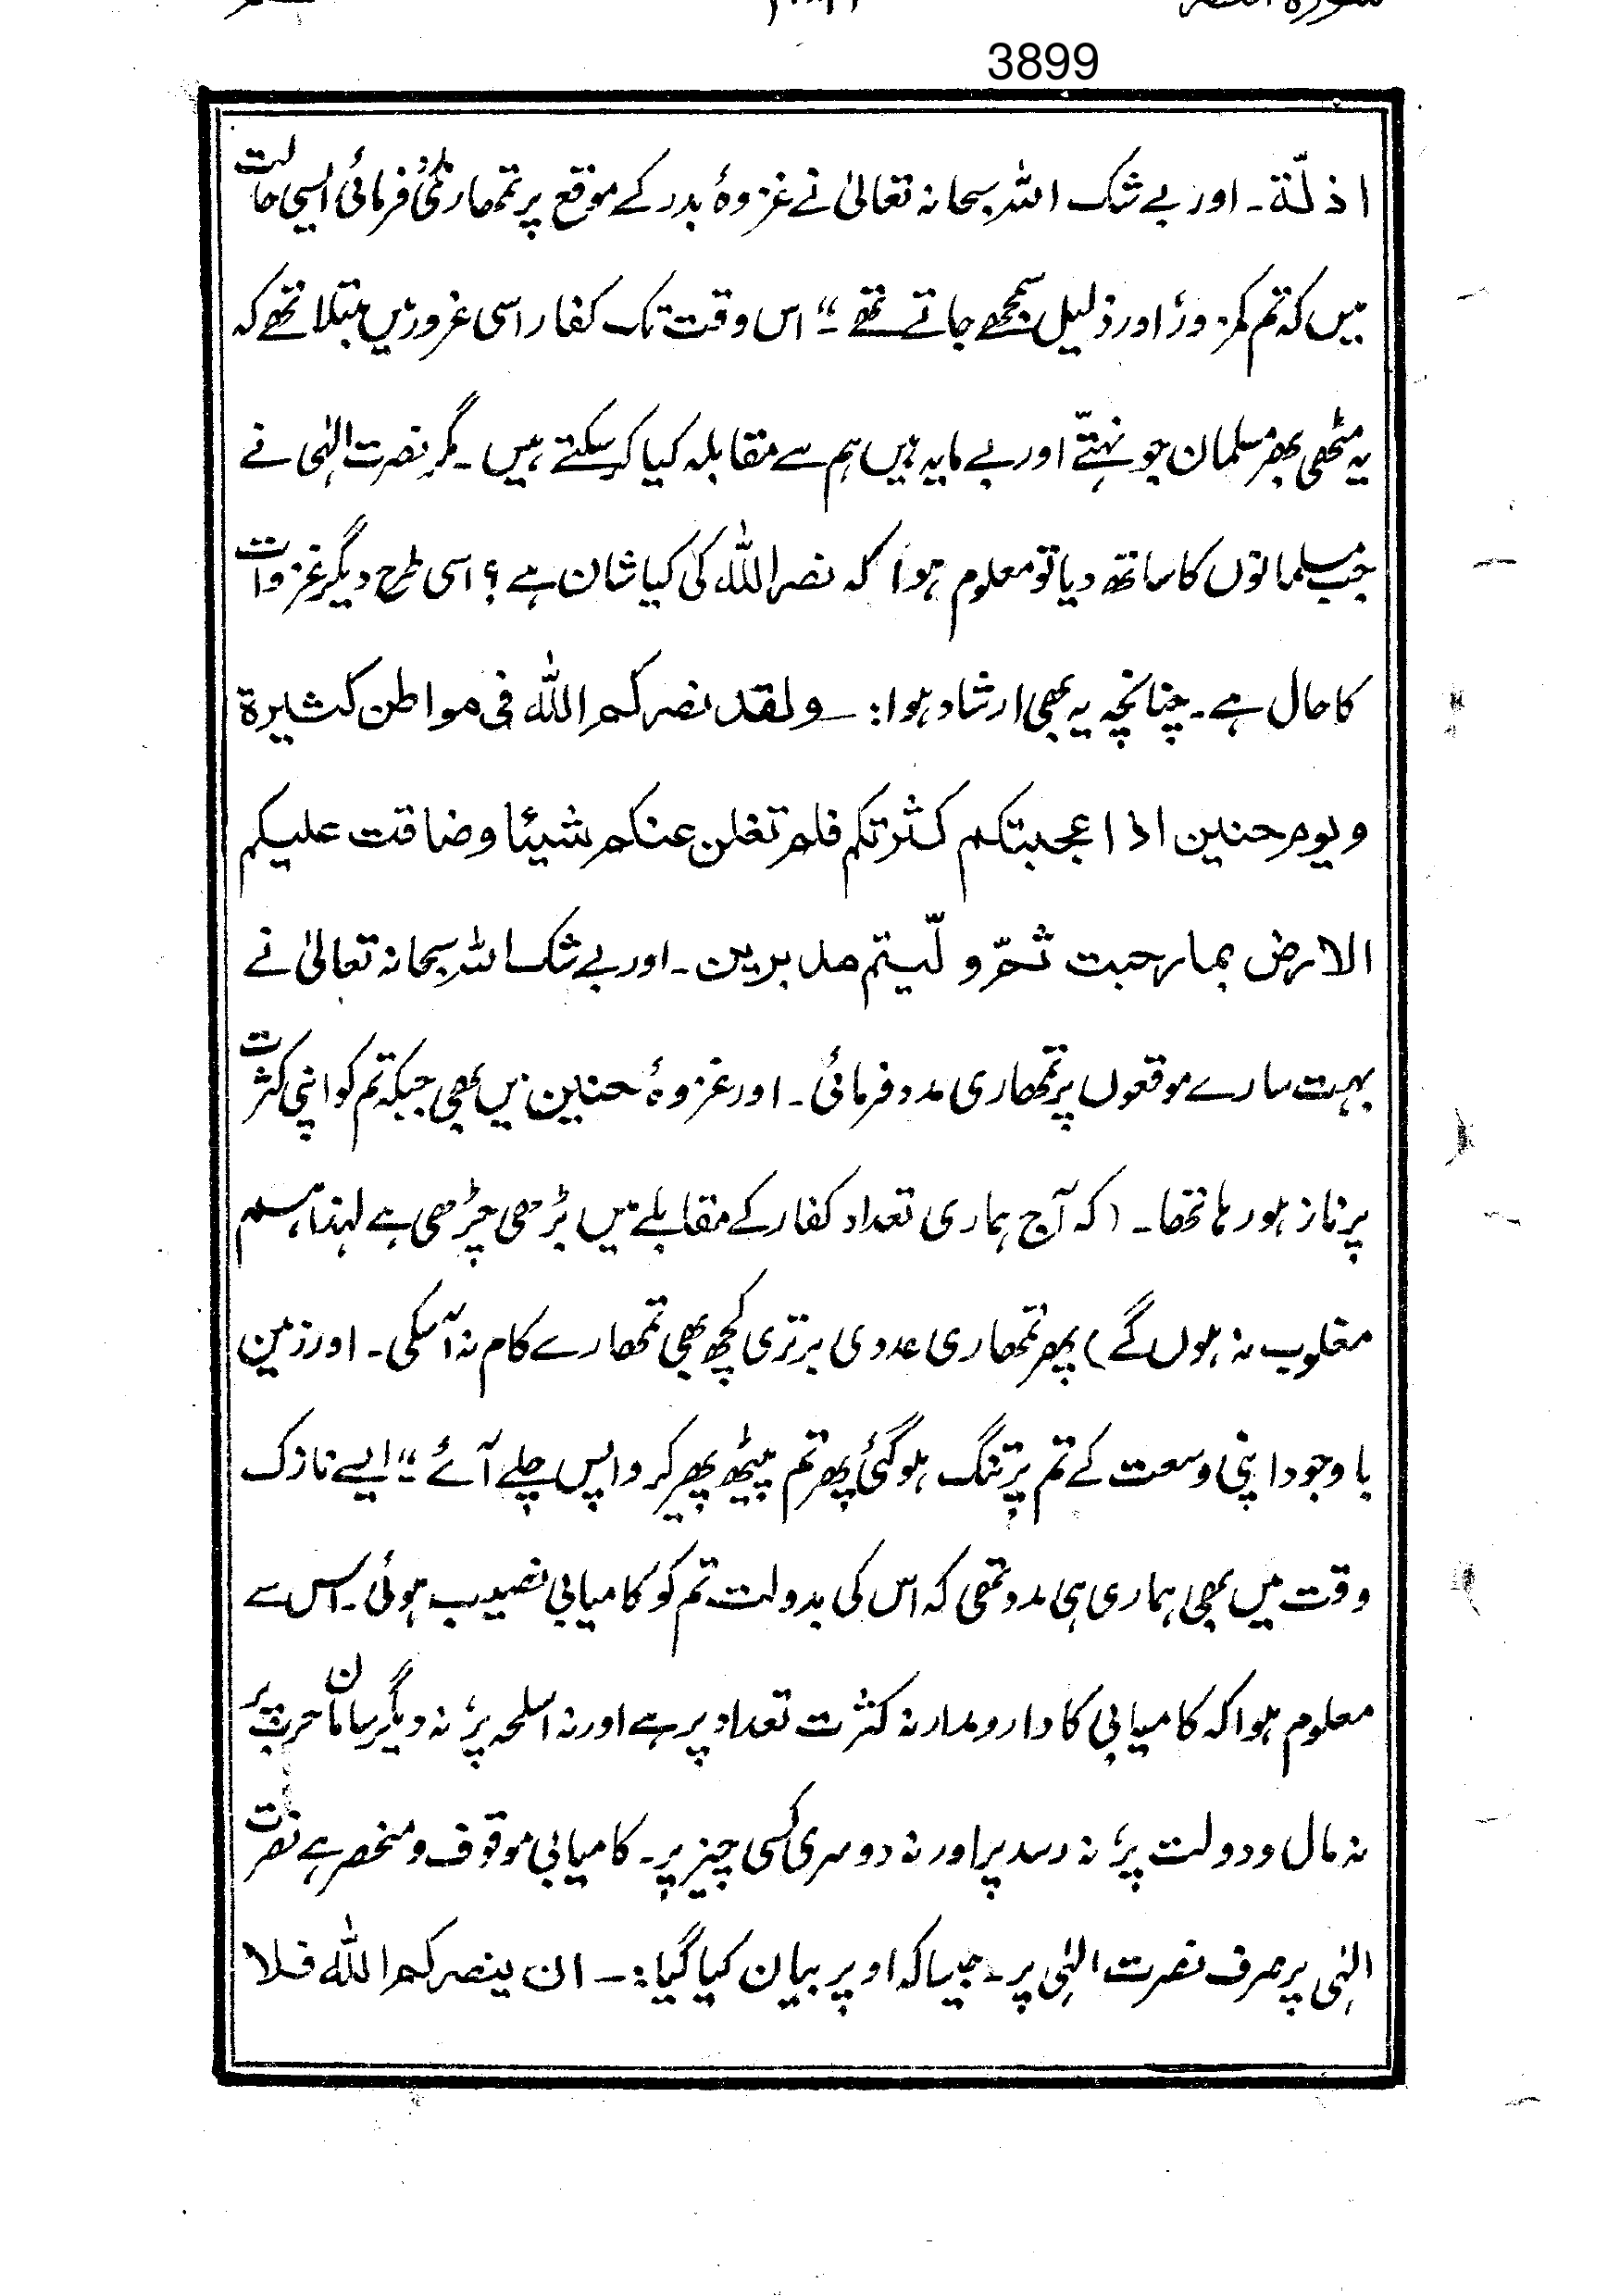 3899
اذلّة۔ اور بے شک اللہ سبحانہ تعالیٰ نے غزوۂ بدر کے موقع پر تمھاری مدد فرمائی ایسی حالت
میں کہ تم کمزور اور ذلیل سمجھے جاتے تھے۔“ اس وقت تک کفار اسی غرور میں مبتلا تھے کہ
یہ مٹھی بھر مسلمان جو نہتّے اور بے مایہ ہیں ہم سے مقابلہ کیا کر سکتے ہیں۔ مگر نصرت الہٰی نے
جب مسلمانوں کا ساتھ دیا تو معلوم ہوا کہ نصر اللہ کی کیا شان ہے؟ اسی طرح دیگر غزوات
کا حال ہے۔ چنانچہ یہ بھی ارشاد ہوا:۔ ولقد نصرکم اللہ فی مواطن کثیرة
ویوم حنین اذ اعجبتکم کثرتکم فلم تغلن عنکم شیئا وضاقت علیکم
الارض بما رحبت ثمّ ولّیتم مدبرین۔ اور بے شک اللہ سبحانہ تعالیٰ نے
بہت سارے موقعوں پر تمھاری مدد فرمائی۔ اور غزوۂ حنین میں بھی جبکہ تم کو اپنی کثرت
پر ناز ہو رہا تھا۔ (کہ آج ہماری تعداد کفار کے مقابلے میں بڑھی چڑھی ہے لہٰذا ہم
مغلوب نہ ہوں گے) پھر تمھاری عددی برتری کچھ بھی تمھارے کام نہ آسکی۔ اور زمین
باوجود اپنی وسعت کے تم پر تنگ ہوگئی پھر تم پیٹھ پھیر کر واپس چلے آئے“ ایسے نازک
وقت میں بھی ہماری ہی مدد تھی کہ اس کی بدولت تم کو کامیابی نصیب ہوئی۔ اس سے
معلوم ہوا کہ کامیابی کا دارومدار نہ کثرت تعداد پر ہے اور نہ اسلحہ پر، نہ دیگر سامان حرب پر
نہ مال ودولت پر، نہ رسد پر اور نہ دوسری کسی چیز پر۔ کامیابی موقوف و منحصر ہے نصرت
الہٰی پر صرف نصرت الہٰی پر۔ جیسا کہ اوپر بیان کیا گیا:۔ ان ینصرکم اللہ فلا